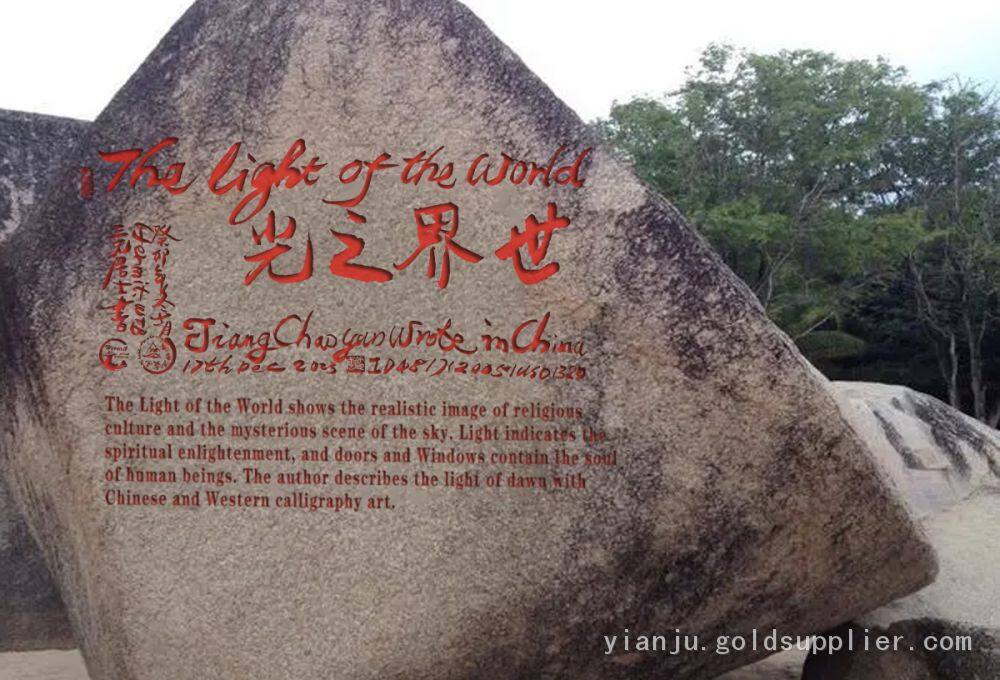 The Light of the World
光之界世
Jiang Chaoyan Wrote in China
17th Dec 2023
The Light of the World shows the realistic image of religious
culture and the mysterious scene of the sky. Light indicates the
spiritual enlightenment, and doors and Windows contain the soul
of human beings. The author describes the light of dawn with
Chinese and Western calligraphy art.
yianju.goldsupplier.com